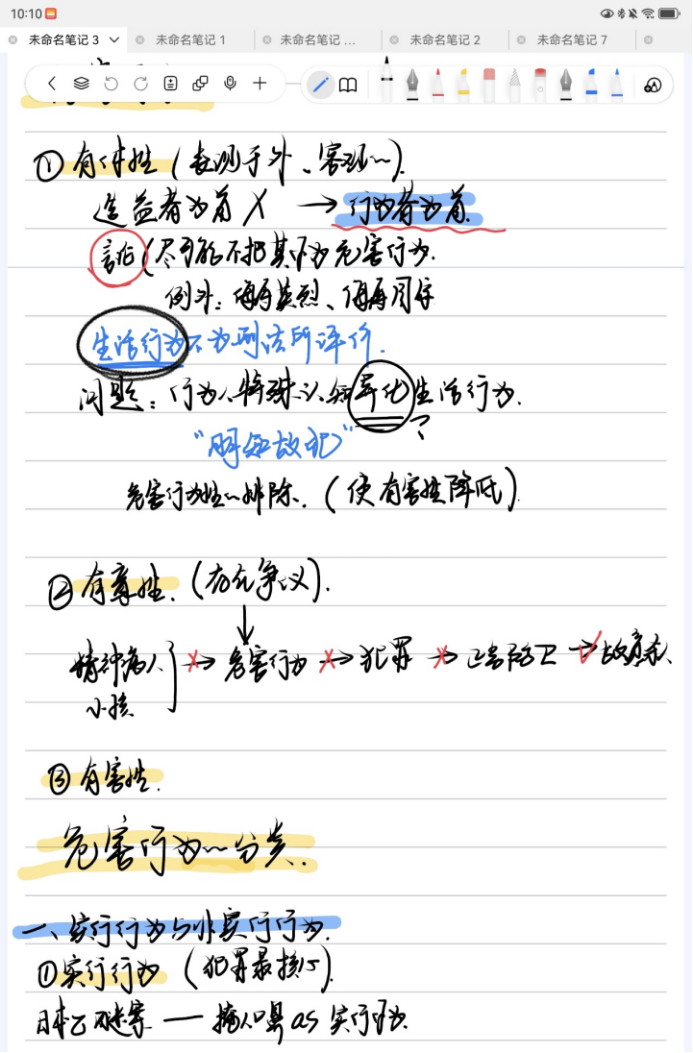 10:10
未命名笔记 3 未命名笔记 1 未命名笔记 ... 未命名笔记 2 未命名笔记 7
①有体性(表现于外、客观~).
造益者为首 X → 行为者为首.
言论(尽可能不把其下为危害行为.
例外:侮辱英烈、侮辱国行
生活行为不为刑法所评价.
问题:行为人特殊认知异化生活行为.
"明知故犯" ?
危害行为性~排除.(使有害性降低)
②有意性.(存在争议).
精神病人 小孩 } → 危害行为 → 犯罪 → 正当防卫 → 故意杀人
③有害性.
危害行为~分类.
一、实行行为与非实行行为.
①实行行为(犯罪最核心)
日本 案 — 捂人口鼻 as 实行行为.